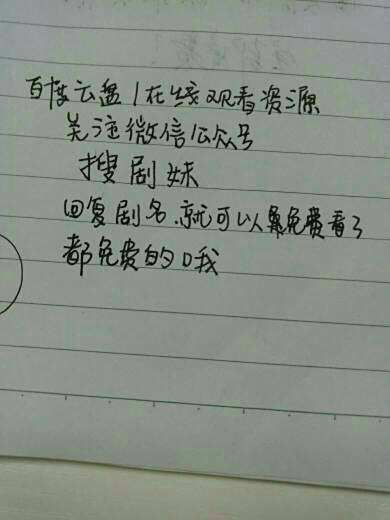 百度云盘/在线观看资源
关注微信公众号
搜剧妹
回复剧名.就可以免费看了
都免费的哦